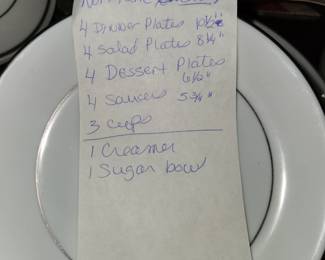 4 Dinner Plates 10½"
4 Salad Plates 8¼"
4 Dessert Plates
6½"
4 Saucers 5¾"
3 cups
1 Creamer
1 Sugar bowl